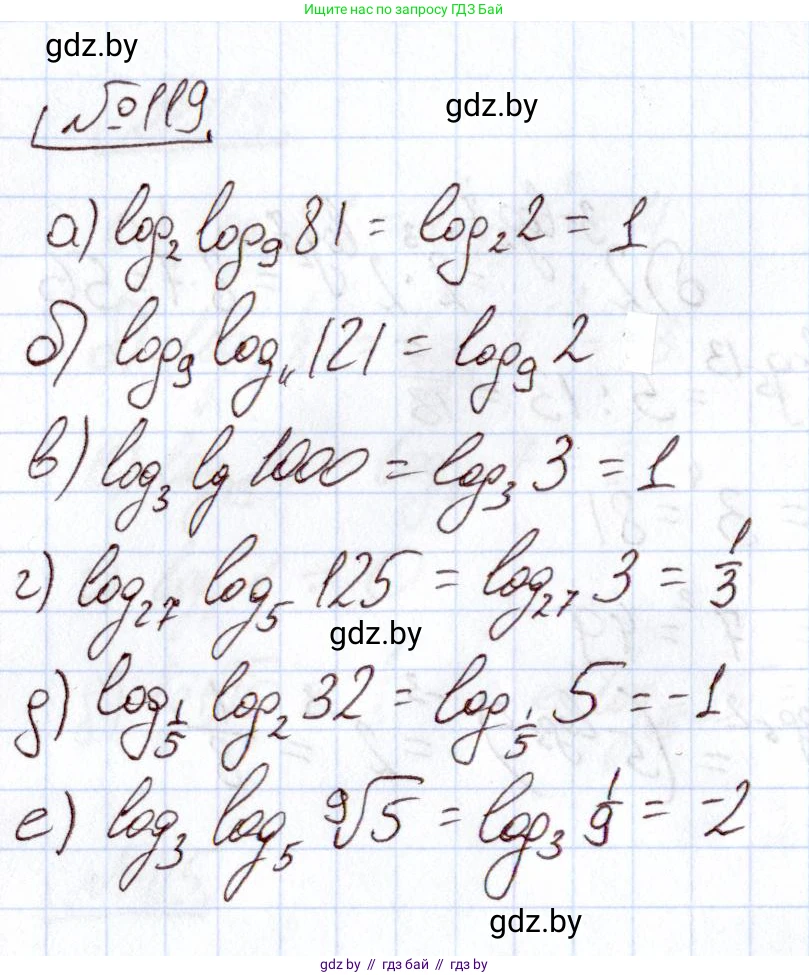 Ищите нас по запросу ГДЗ Бай
gdz.by
№119
gdz.by
а) log₂ log₉ 81 = log₂ 2 = 1
б) log₉ log₁₁ 121 = log₉ 2
в) log₃ lg 1000 = log₃ 3 = 1
г) log₂₇ log₅ 125 = log₂₇ 3 = 1/3
gdz.by
д) log_{1/5} log₂ 32 = log_{1/5} 5 = -1
е) log₃ log₅ ⁹√5 = log₃ 1/9 = -2
gdz.by
gdz.by // гдз бай // гдз by